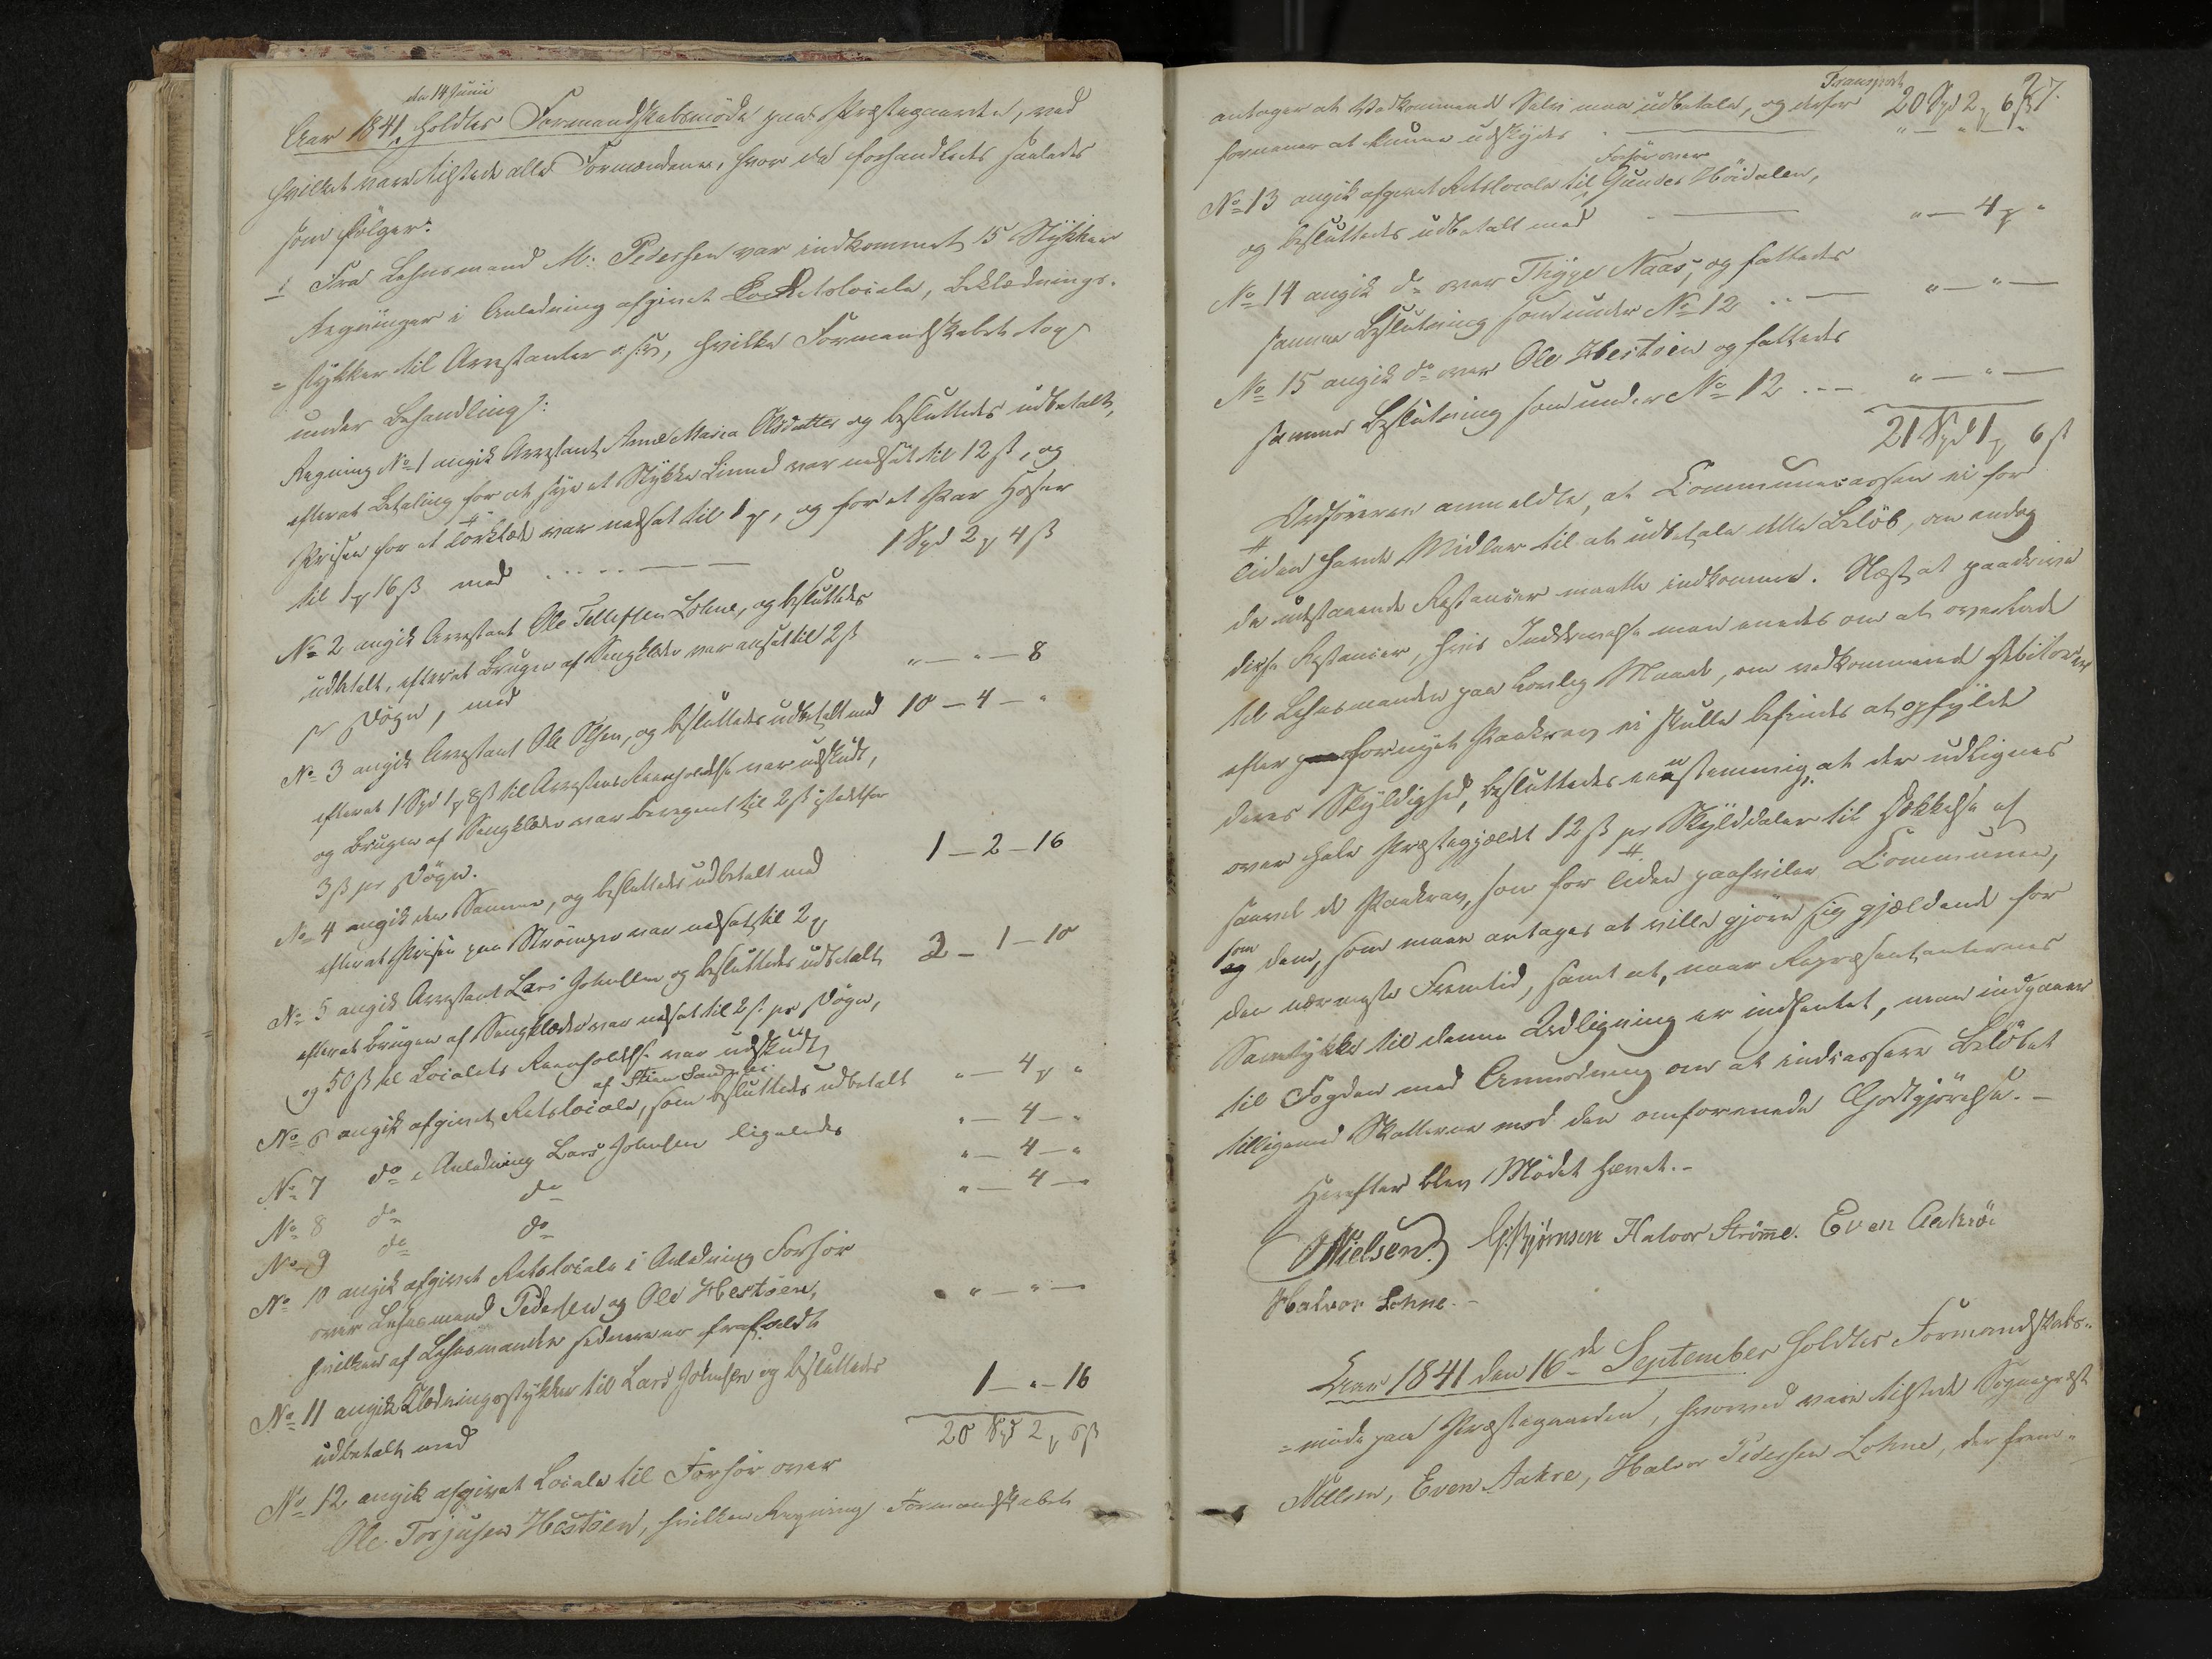 den 14 Junii
Aar 1841, holdtes Formandskabsmöde paa Præstegaarden, ved
hvilket vare tilstede alle Formændene, hvor da forhandledes saaledes
som fölger:
1 Fra Lehnsmand M. Pedersen var indkommet 15 Stykker
Regninger i Anledning afgivet Retslocale, Beklædnings-
= stykker til Arrestanter o. s. v., hvilke Formandskabet tog
under Behandling:
Regning No 1 angik Arrestant Anne Maria Olsdatter og besluttedes udbetalt,
efterat Betaling for at sye et Stykke Linned var nedsat til 12 ß, og
Prisen for et Törklæde var nedsat til 1 , og for et Par Hoser
til 1 16 ß med 1 Spd 2 4 ß
No 2 angik Arrestant Ole Tellefsen Lohne, og besluttedes
udbetalt, efterat Brugen af Sengklæder var ansat til 2 ß
pr Dögn, med " — " — 8
No 3 angik Arrestant Ole Olsen, og besluttedes udbetalt med 10 — 4 — "
efterat 1 Spd 1 8 ß til Arrestens Reenholdelse var udskudt,
og Brugen af Sengklæder var beregnet til 2 ß istedetfor
3 ß pr Dögn.
No 4 angik den Samme, og besluttedes udbetalt med 1 — 2 — 16
efterat Prisen paa Strömper var nedsat til 2
No 5 angik Arrestant Lars Johnsen og besluttedes udbetalt 3 — 1 — 10
efterat Brugen af Sengklæder var nedsat til 2 ß pr Dögn,
og 50 ß til Localets Reenholdelse var udskudt
No 6 angik afgivet Retslocale, som besluttedes udbetalt " — 4 "
No 7 do i Anledning Lars Johnsen ligeledes " — 4 — "
No 8 do do " — 4 — "
No 9 do do " — 4 — "
No 10 angik afgivet Retslocale i Anledning Forhör
over Lehnsmand Pedersen og Ole Hestöen,
hvilken af Lehnsmanden sednere er frafaldt " — " —
No 11 angik Klædningsstykker til Lars Johnsen og besluttedes
udbetalt med 1 — " — 16
20 Spd 2 6 ß
No 12 angik afgivet Locale til Forhör over
Ole Torjusen Hestöen, hvilken Regning Formandskabet
27.
Transport 20 Spd 2 6 ß
antager at Vedkommende Selv maa udbetale, og derfor
formener at kunne udskydes " — " — "
Forhör over
No 13 angik afgivet Retslocale til Gunder Höidalen,
og besluttedes udbetalt med " — 4 "
No 14 angik do over Thyge Naas, og fattedes
samme Beslutning som under No 12 " — " —
No 15 angik do over Ole Hestöen og fattedes
samme Beslutning som under No 12 " — " —
21 Spd 1 6 ß
Ordföreren anmeldte, at Communecassen ei for
Tiden havde Midler til at udbetale dette Belöb, om endog
de udestaaende Restancer maatte indkomme. Næst at paadrive
disse Restancer, hvis Inddrivelse man enedes om at overlade
til Lehnsmanden paa lovlig Maade, om vedkommende Debitorer
efter fornyet Paakrav ei skulle befindes at opfylde
deres Skyldighed, besluttedes eenstemmig, at der udlignes
over hele Præstegjeldet 12 ß pr Skylddaler til Dækkelse af
saavel de Paakrav, som for Tiden paahviler Communen,
som dem, som maae antages at ville gjöre sig gjældende for
den nærmeste Fremtid, samt at, naar Repræsentanternes
Samtykke til denne Udligning er indhentet, man indgaaer
til Fogden med Anmodning om at indcassere Belöbet
tilligemed Skatterne mod den omforenede Godtgjörelse. —
Herefter blev Mödet hævet. —
Nielsen. G. Bjørnsen Halvor Strömme. Even Aakröe
Halvor Lohne. —
Aar 1841 den 16de September holdtes Formandskabs-
= möde paa Præstegaarden, hvorved vare tilstede Sognepræst
Nielsen, Even Aakre, Halvor Pedersen Lohne, der frem-